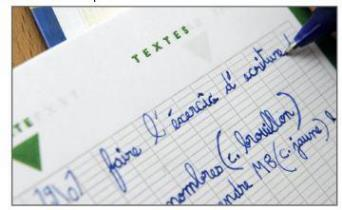 TEXTES
TE
faire l'éxercice d'écriture!
nombres (c. brouillon)
ndre MB (c. jaune)